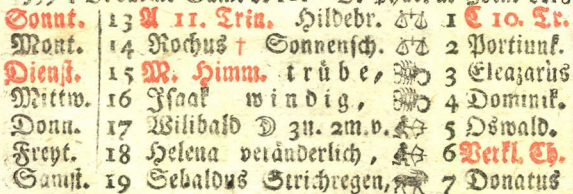 Sonnt. 13 A 11. Trin. Hildebr. ♎ 1 C 10. Tr.
Mont. 14 Rochus † Sonnensch. ♎ 2 Portiunk.
Dienst. 15 M. Himm. trübe, ♏ 3 Eleazarus
Mittw. 16 Isaak windig, ♏ 4 Dominik.
Donn. 17 Wilibald ☽ 3u. 2m.v. ♐ 5 Oswald.
Freyt. 18 Helena veränderlich, ♐ 6 Verkl. Ch.
Samst. 19 Sebaldus Strichregen, 7 Donatus